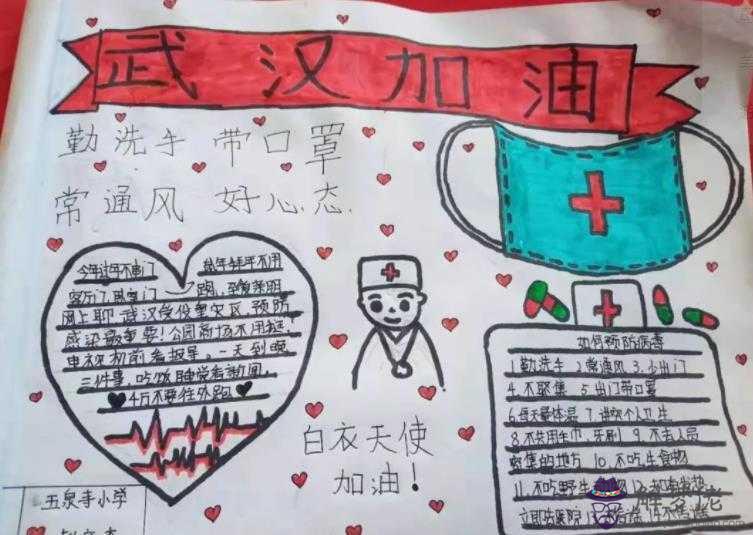 武汉加油
勤洗手 带口罩
常通风 好心态
今年过年不串门
客厅厂卧室门
网上聊 武汉受役重灾区，预防
感染最重要！公园商场不用挺，
电视机前看报导。一天到晚
三件事，吃饭睡觉看新闻。
4万不要往外跑
白衣天使
加油！
五泉寺小学
如何预防病毒
1.勤洗手 2.常通风 3.少出门
4.不聚集 5.出门带口罩
6.每天量体温 7.讲究个人卫生
8.不共用毛巾、牙刷 9.不去人员
密集的地方 10.不吃生食物
11.不吃野生
立即去医院